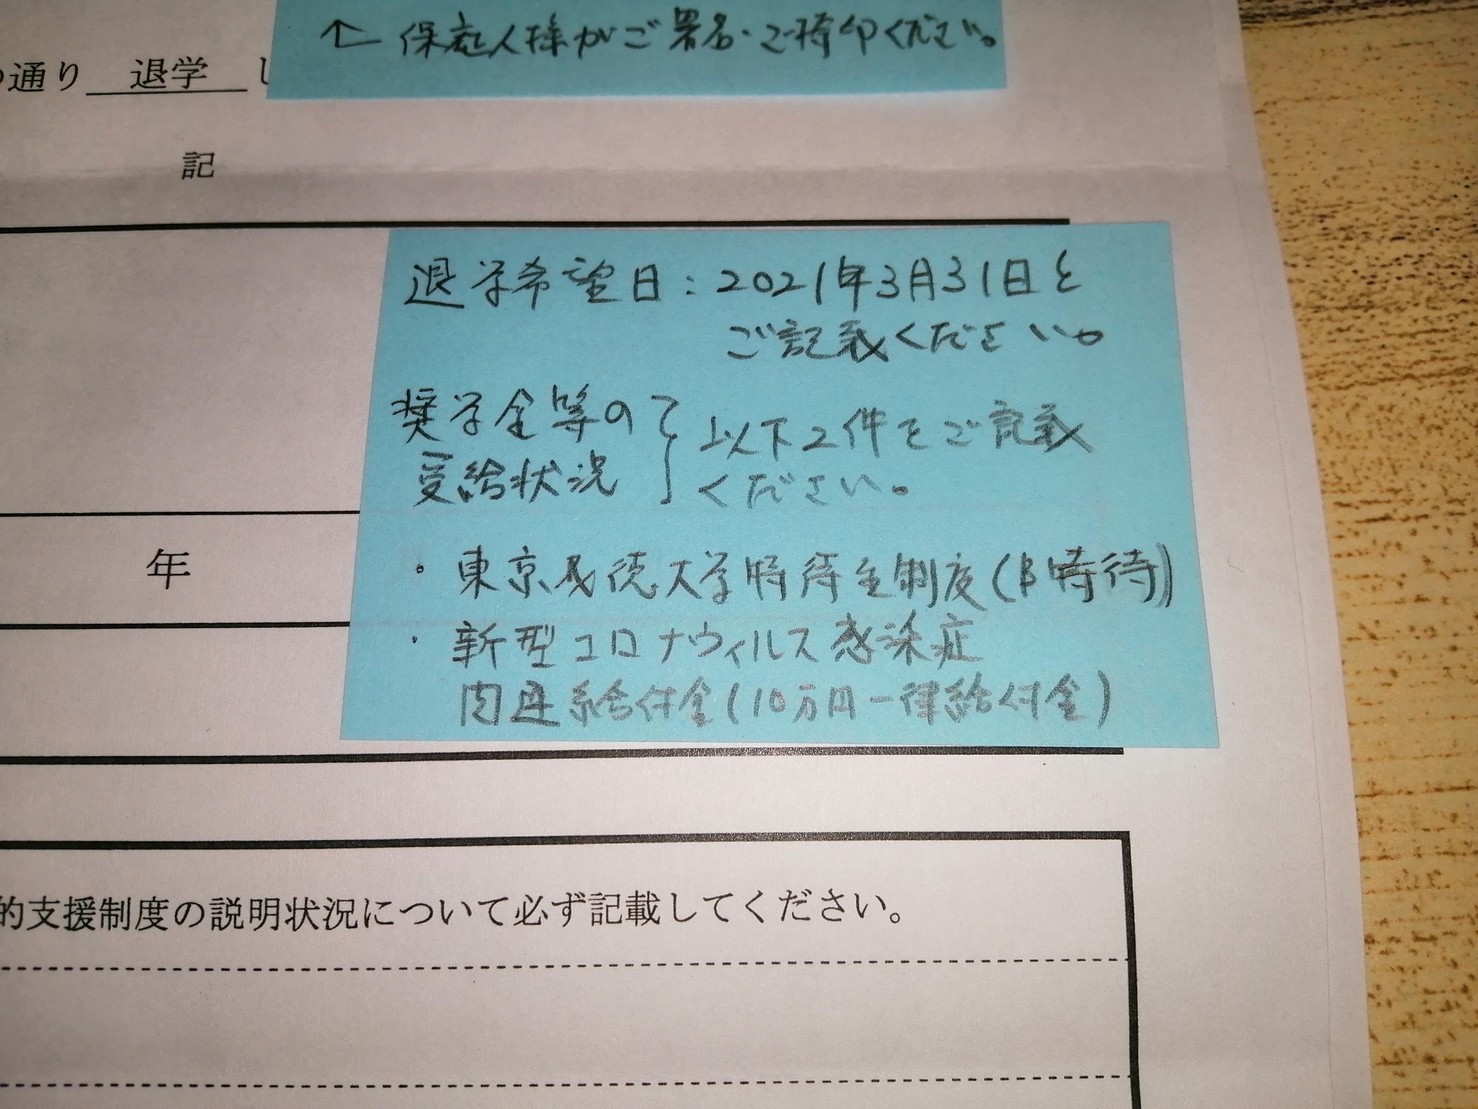 ← 保証人様がご署名・ご捺印ください。
の通り 退学 し
記
退学希望日：2021年3月31日と
ご記載ください。
奨学金等の
受給状況
以下2件をご記載
ください。
年
・東京成徳大学特待生制度(B特待)
・新型コロナウィルス感染症
関連給付金(10万円一律給付金)
的支援制度の説明状況について必ず記載してください。